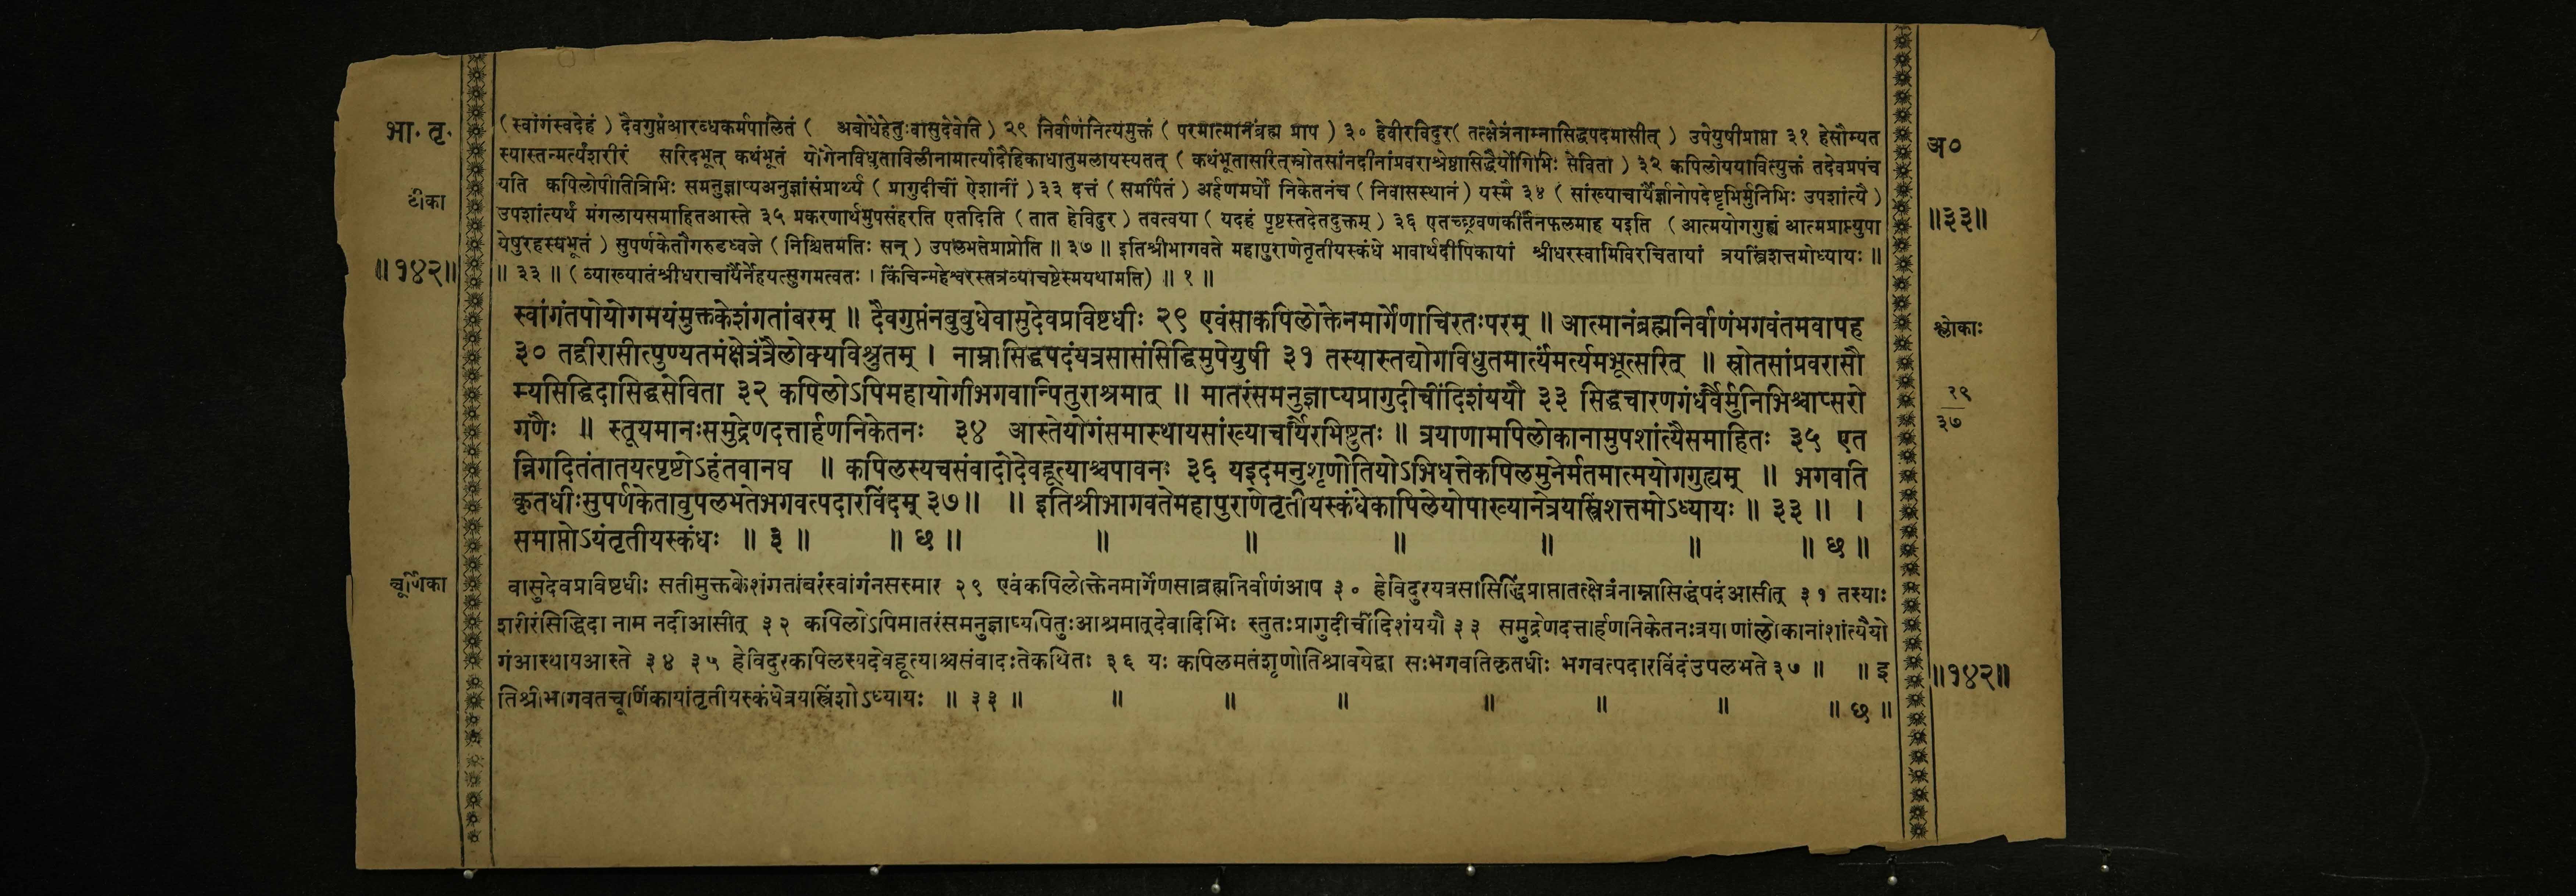 भा. तृ.
टीका
॥१४२॥
(स्वांगंस्वदेहं) दैवगुप्तंआरब्धकर्मपालितं ( अबोधेहेतुःवासुदेवेति) २९ निर्वाणंनित्यमुक्तं (परमात्मानंब्रह्म प्राप) ३० हेवीरविदुर( तत्क्षेत्रंनाम्नासिद्धपदमासीत्) उपेयुषीप्राप्ता ३१ हेसौम्यत
स्यास्तन्मर्त्यंशरीरं सरिदभूत् कथंभूतं योगेनविधुताविलीनामार्त्यादैहिकाधातुमलायस्यतत् (कथंभूतासरित्स्रोतसांनदीनांप्रवराश्रेष्ठासिद्धैर्योगिभिः सेविता) ३२ कपिलोययावित्युक्तं तदेवप्रपंच
यति कपिलोपीतित्रिभिः समनुज्ञाप्यअनुज्ञांसंप्रार्थ्य (प्रागुदीचीं ऐशानीं) ३३ दत्तं (समर्पितं) अर्हणमर्घो निकेतनंच (निवासस्थानं) यस्मै ३४ (सांख्याचार्यैर्ज्ञानोपदेष्टृभिर्मुनिभिः उपशांत्यै)
उपशांत्यर्थं मंगलायसमाहितआस्ते ३५ प्रकरणार्थमुपसंहरति एतदिति (तात हेविदुर) तवत्वया (यदहं पृष्टस्तदेतदुक्तम्) ३६ एतच्छ्रवणकीर्तनफलमाह यइति (आत्मयोगगुह्यं आत्मप्राप्त्युपा
येषुरहस्यभूतं) सुपर्णकेतौगरुडध्वजे (निश्चितमतिः सन्) उपलभतेप्राप्नोति ॥ ३७ ॥ इतिश्रीभागवते महापुराणेतृतीयस्कंधे भावार्थदीपिकायां श्रीधरस्वामिविरचितायां त्रयस्त्रिंशत्तमोध्यायः ॥
॥ ३३ ॥ (व्याख्यातंश्रीधराचार्यैर्नेहयत्सुगमत्वतः । किंचिन्महेश्वरस्तत्रव्याचष्टेस्मयथामति) ॥ १ ॥
स्वांगंतपोयोगमयंमुक्तकेशंगतांबरम् ॥ दैवगुप्तंनबुबुधेवासुदेवप्रविष्टधीः २९ एवंसाकपिलोक्तेनमार्गेणाचिरतःपरम् ॥ आत्मानंब्रह्मनिर्वाणंभगवंतमवापह
३० तद्वीरासीत्पुण्यतमंक्षेत्रंत्रैलोक्यविश्रुतम् । नाम्नासिद्धपदंयत्रसासांसिद्धिमुपेयुषी ३१ तस्यास्तद्योगविधुतमार्त्यंमर्त्यमभूत्सरित् ॥ स्रोतसांप्रवरासौ
म्यसिद्धिदासिद्धसेविता ३२ कपिलोऽपिमहायोगीभगवान्पितुराश्रमात् ॥ मातरंसमनुज्ञाप्यप्रागुदीचींदिशंययौ ३३ सिद्धचारणगंधर्वैर्मुनिभिश्चाप्सरो
गणैः ॥ स्तूयमानःसमुद्रेणदत्तार्हणनिकेतनः ३४ आस्तेयोगंसमास्थायसांख्याचार्यैरभिष्टुतः ॥ त्रयाणामपिलोकानामुपशांत्यैसमाहितः ३५ एत
न्निगदितंतातयत्पृष्टोऽहंतवानघ ॥ कपिलस्यचसंवादोदेवहूत्याश्चपावनः ३६ यइदमनुशृणोतियोऽभिधत्तेकपिलमुनेर्मतमात्मयोगगुह्यम् ॥ भगवति
कृतधीःसुपर्णकेतावुपलभतेभगवत्पदारविंदम् ३७॥ ॥ इतिश्रीभागवतेमहापुराणेतृतीयस्कंधेकापिलेयोपाख्यानेत्रयस्त्रिंशत्तमोऽध्यायः ॥ ३३ ॥ ।
समाप्तोऽयंतृतीयस्कंधः ॥ ३ ॥ ॥ छ ॥ ॥ ॥ ॥ ॥ ॥ ॥ छ ॥
चूर्णिका
वासुदेवप्रविष्टधीः सतीमुक्तकेशंगतांबरंस्वांगंनसस्मार २९ एवंकपिलोक्तेनमार्गेणसाब्रह्मनिर्वाणंआप ३० हेविदुरयत्रसासिद्धिंप्राप्तातत्क्षेत्रंनाम्नासिद्धंपदंआसीत् ३१ तस्याः
शरीरंसिद्धिदा नाम नदीआसीत् ३२ कपिलोऽपिमातरंसमनुज्ञाप्यपितुःआश्रमात्देवादिभिः स्तुतःप्रागुदीचींदिशंययौ ३३ समुद्रेणदत्तार्हणनिकेतनःत्रयाणांलोकानांशांत्यैयो
गंआस्थायआस्ते ३४ ३५ हेविदुरकपिलस्यदेवहूत्याश्चसंवादःतेकथितः ३६ यः कपिलमतंशृणोतिश्रावयेद्वा सःभगवतिकृतधीः भगवत्पदारविंदंउपलभते ३७ ॥ ॥ इ
तिश्रीभागवतचूर्णिकायांतृतीयस्कंधेत्रयस्त्रिंशोऽध्यायः ॥ ३३ ॥ ॥ ॥ ॥ ॥ ॥ ॥ ॥ छ ॥
अ०
॥३३॥
श्लोकाः
२९
३७
॥१४२॥